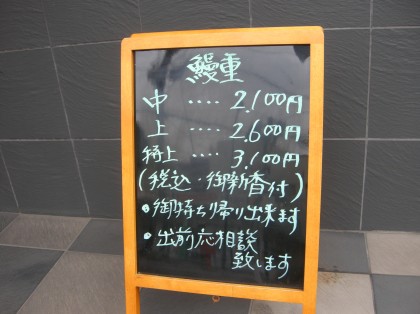 鰻重
中 ‥‥ 2,100円
上 ‥‥ 2,600円
特上 ‥‥ 3,100円
(税込・御新香付)
・御持ち帰り出来ます
・出前応相談
致します